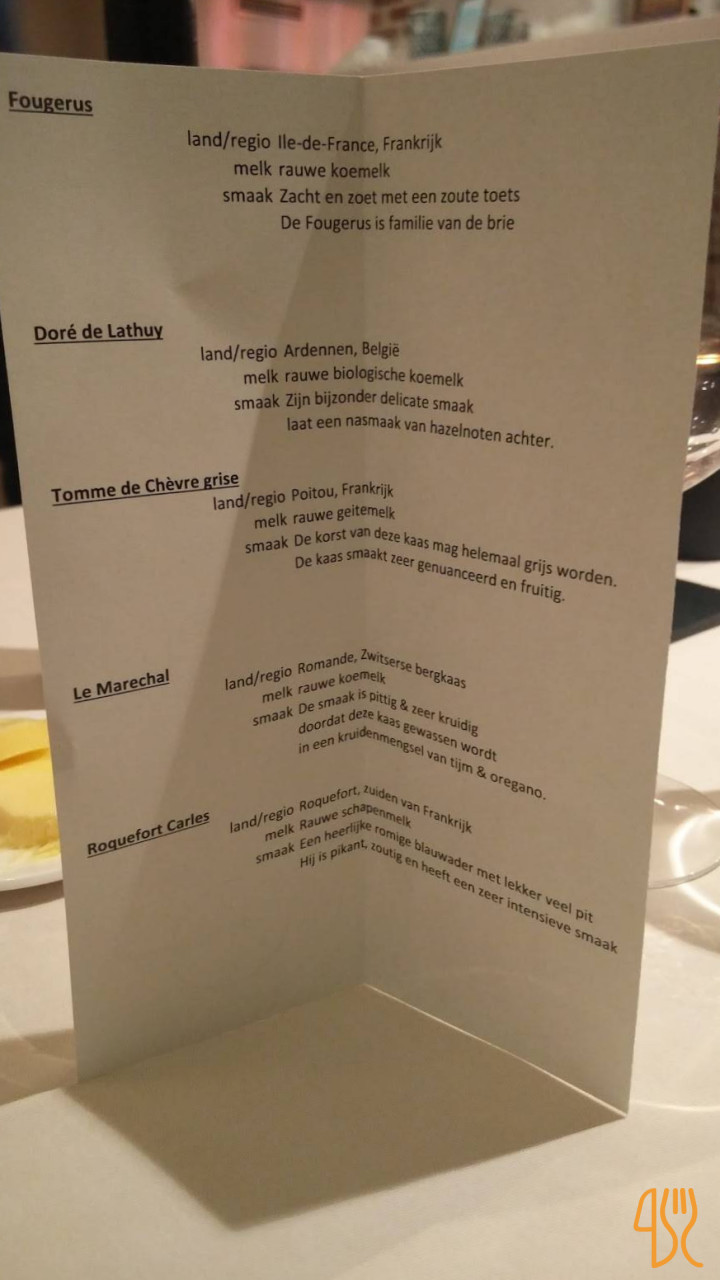 Fougerus
land/regio Ile-de-France, Frankrijk
melk rauwe koemelk
smaak Zacht en zoet met een zoute toets
De Fougerus is familie van de brie
Doré de Lathuy
land/regio Ardennen, België
melk rauwe biologische koemelk
smaak Zijn bijzonder delicate smaak
laat een nasmaak van hazelnoten achter.
Tomme de Chèvre grise
land/regio Poitou, Frankrijk
melk rauwe geitemelk
smaak De korst van deze kaas mag helemaal grijs worden.
De kaas smaakt zeer genuanceerd en fruitig.
Le Marechal
land/regio Romande, Zwitserse bergkaas
melk rauwe koemelk
smaak De smaak is pittig & zeer kruidig
doordat deze kaas gewassen wordt
in een kruidenmengsel van tijm & oregano.
Roquefort Carles
land/regio Roquefort, zuiden van Frankrijk
melk Rauwe schapenmelk
smaak Een heerlijke romige blauwader met lekker veel pit
Hij is pikant, zoutig en heeft een zeer intensieve smaak